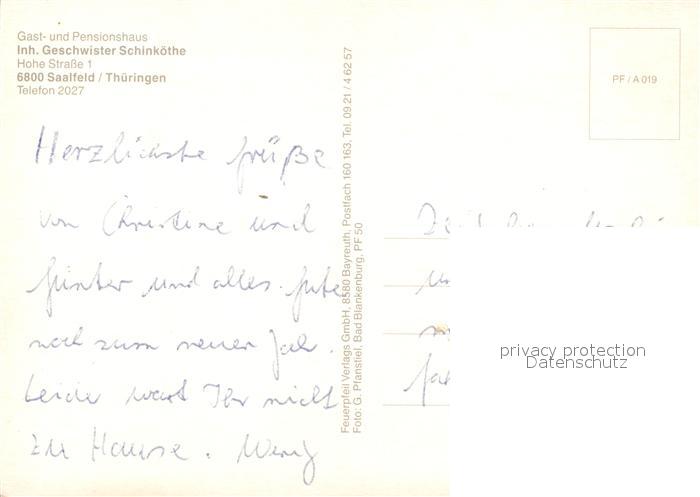 Gast- und Pensionshaus
Inh. Geschwister Schinköthe
Hohe Straße 1
6800 Saalfeld / Thüringen
Telefon 2027
Herzlichste Grüße
von Christine und
Günter und alles Gute
noch zum neuen Jahr.
Leider wart Ihr nicht
zu Hause. Wenig
Feuerpfeil Verlags GmbH, 8580 Bayreuth, Postfach 160 163, Tel. 09 21 / 4 62 57
Foto: G. Pfanstiel, Bad Blankenburg. PF 50
PF / A 019
privacy protection
Datenschutz